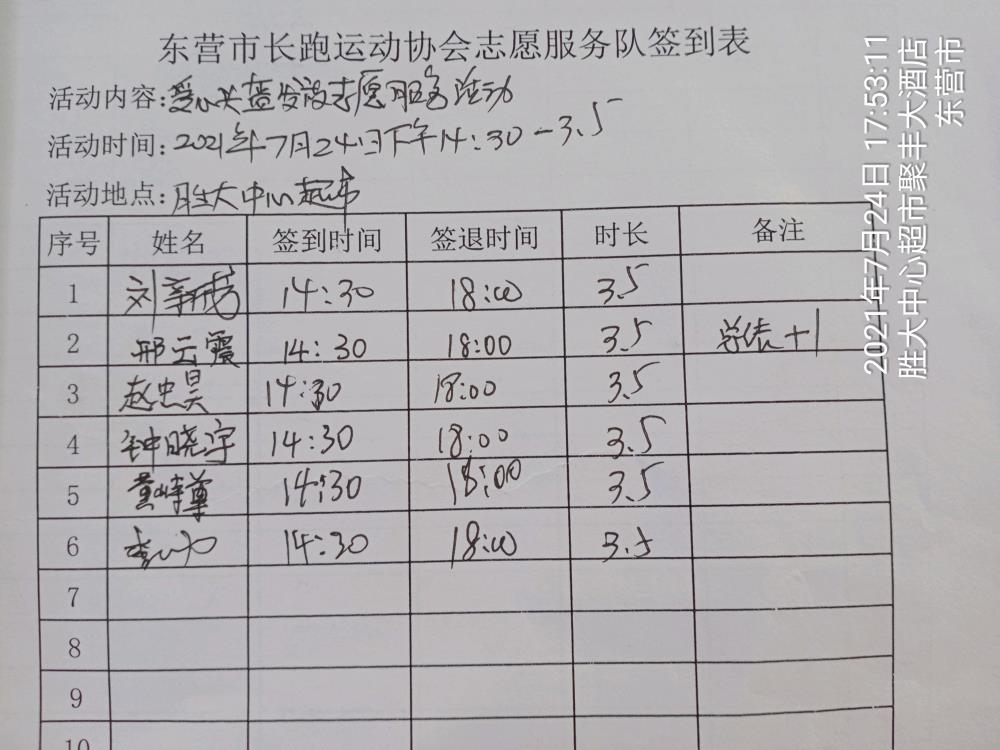 东营市长跑运动协会志愿服务队签到表
活动内容:爱心共蓝发放志愿服务活动
活动时间:2021年7月24日下午14:30-3.5
活动地点:胜大中心超市
序号 姓名 签到时间 签退时间 时长 备注
1 刘 14:30 18:00 3.5
2 邢云霞 14:30 18:00 3.5 总表+1
3 赵忠昊 14:30 18:00 3.5
4 钟晓宇 14:30 18:00 3.5
5 董峰尊 14:30 18:00 3.5
6 14:30 18:00 3.5
7
8
9
10
2021年7月24日 17:53:11
胜大中心超市聚丰大酒店
东营市